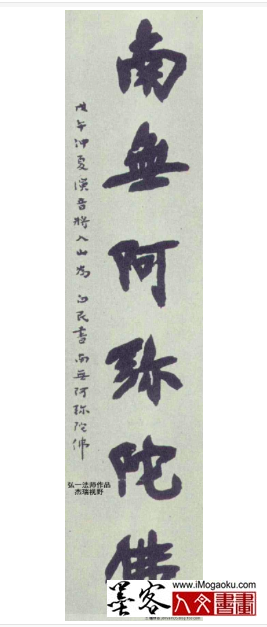 南無阿弥陀佛
戊午仲夏演音將入山為白民書南無阿弥陀佛
弘一法师作品
杰瑞视野
www.iMogaoku.com
墨客人文書畫